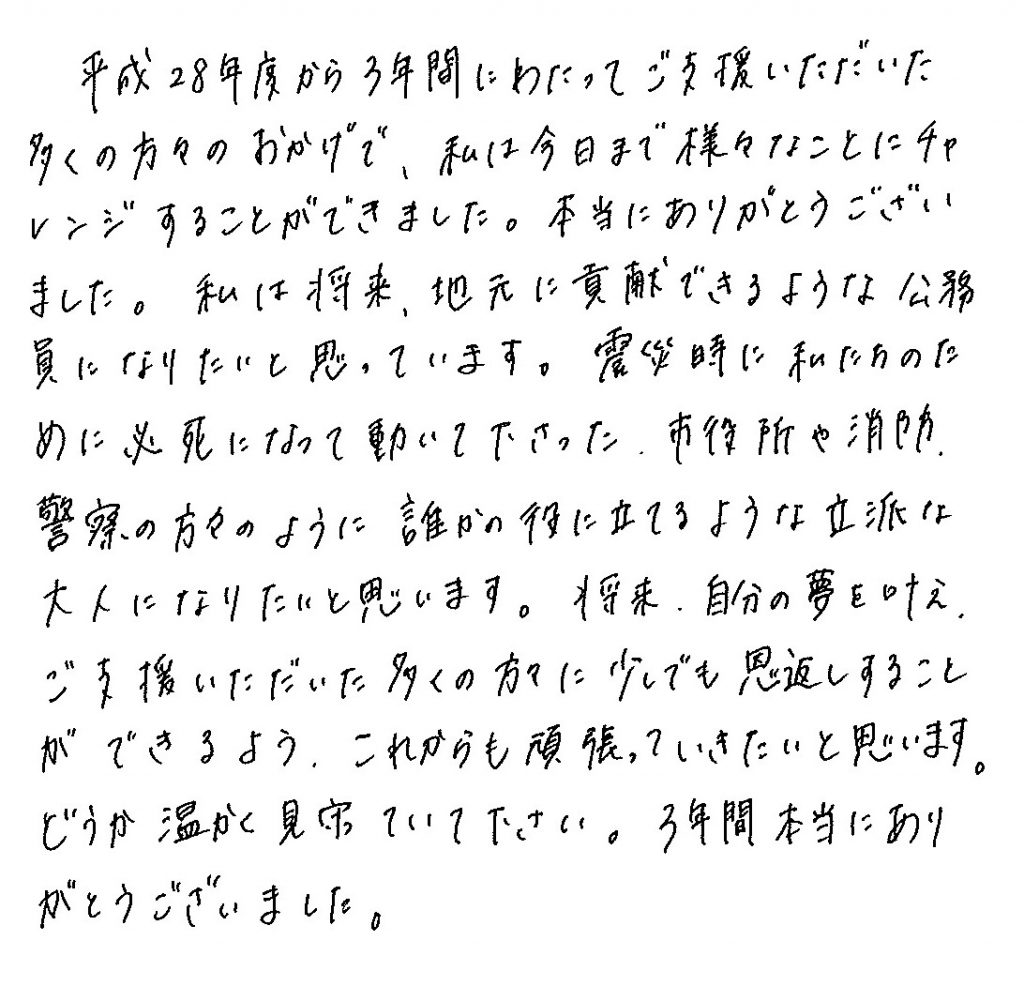 平成28年度から3年間にわたってご支援いただいた
多くの方々のおかげで、私は今日まで様々なことにチャ
レンジすることができました。本当にありがとうござい
ました。私は将来、地元に貢献できるような公務
員になりたいと思っています。震災時に私たちのた
めに必死になって動いて下さった、市役所や消防、
警察の方々のように誰かの役に立てるような立派な
大人になりたいと思います。将来、自分の夢を叶え、
ご支援いただいた多くの方々に少しでも恩返しすること
ができるよう、これからも頑張っていきたいと思います。
どうか温かく見守っていて下さい。3年間本当にあり
がとうございました。